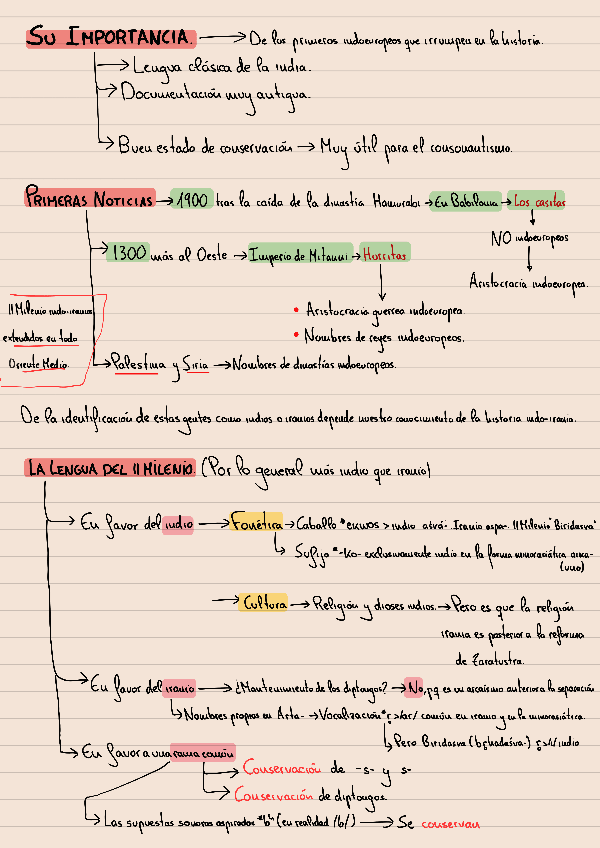 SU IMPORTANCIA. → De los primeros indoeuropeos que irrumpen en la historia.
→ Lengua clásica de la india.
→ Documentación muy antigua.
→ Buen estado de conservación → Muy útil para el consonantismo.
PRIMERAS NOTICIAS → 1900 tras la caída de la dinastía Hamurabi → En Babilonia → Los casitas
NO indoeuropeos
Aristocracia indoeuropea.
→ 1300 más al Oeste → Imperio de Mitanni → Hurritas
• Aristocracia guerrea indoeuropea.
• Nombres de reyes indoeuropeos.
II Milenio indo-iranios
extendidos en todo
Oriente Medio.
→ Palestina y Siria → Nombres de dinastías indoeuropeos.
De la identificación de estas gentes como indios o iranios depende nuestro conocimiento de la historia indo-irania.
LA LENGUA DEL II MILENIO. (Por lo general más indio que iranio)
→ En favor del indio → Fonética → Caballo *ekwos > indio atvá- Iranio aspa- II Milenio "Biridasva"
→ Sufijo *-ko- exclusivamente indio en la forma minorasiática aika-
(uno)
→ Cultura → Religión y dioses indios. → Pero es que la religión
irania es posterior a la reforma
de Zaratustra.
→ En favor del iranio → ¿Mantenimiento de los diptongos? → No, pq es un arcaísmo anterior a la separación
→ Nombres propios en Arta- → Vocalización *r̥ > /ar/ común en iranio y en la minorasiática.
→ Pero Biridasva (br̥hadasva-) r̥ > /i/ indio
→ En favor a una rama común
→ Conservación de -s- y s-
→ Conservación de diptongos.
→ Las supuestas sonoras aspiradas "b" (en realidad /b/) → Se conservan